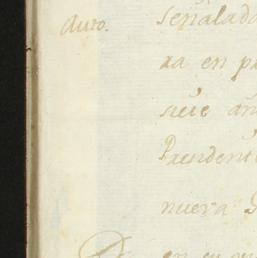 Auto.
señalada
za en p
siete añ
Presiden
nueva